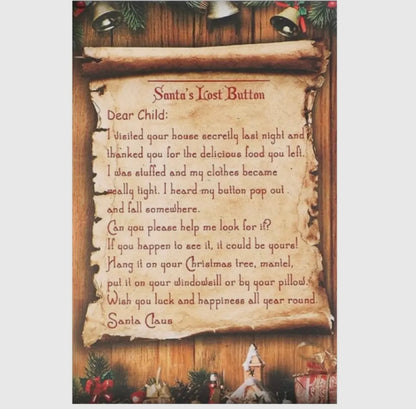 Santa's Lost Button
Dear Child:
I visited your house secretly last night and
thanked you for the delicious food you left.
I was stuffed and my clothes became
really tight. I heard my button pop out .
and fall somewhere.
Can you please help me look for it?
If you happen to see it, it could be yours!
Hang it on your Christmas tree, mantel,
put it on your windowsill or by your pillow.
Wish you luck and happiness all year round.
Santa Claus